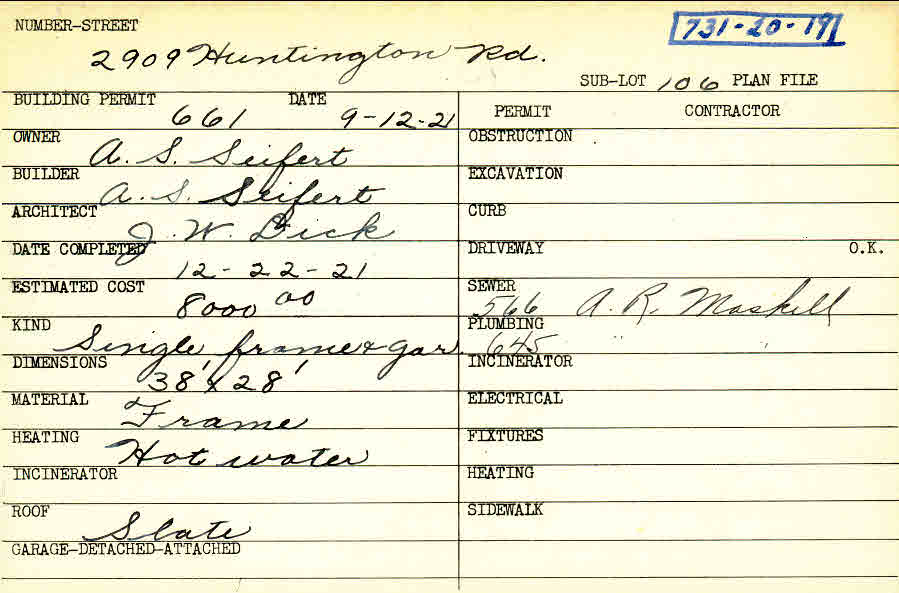 NUMBER-STREET
731-20-19
2909 Huntington Rd.
SUB-LOT 106 PLAN FILE
BUILDING PERMIT 661 DATE 9-12-21
PERMIT CONTRACTOR
OWNER A. S. Seifert
OBSTRUCTION
BUILDER A. S. Seifert
EXCAVATION
ARCHITECT J. W. Dick
CURB
DATE COMPLETED 12-22-21
DRIVEWAY O.K.
ESTIMATED COST 8000 00
SEWER 566 A. R. Maskell
KIND Single, frame & gar.
PLUMBING 645 " "
DIMENSIONS 38' x 28'
INCINERATOR
MATERIAL Frame
ELECTRICAL
HEATING Hot water
FIXTURES
INCINERATOR
HEATING
ROOF Slate
SIDEWALK
GARAGE-DETACHED-ATTACHED